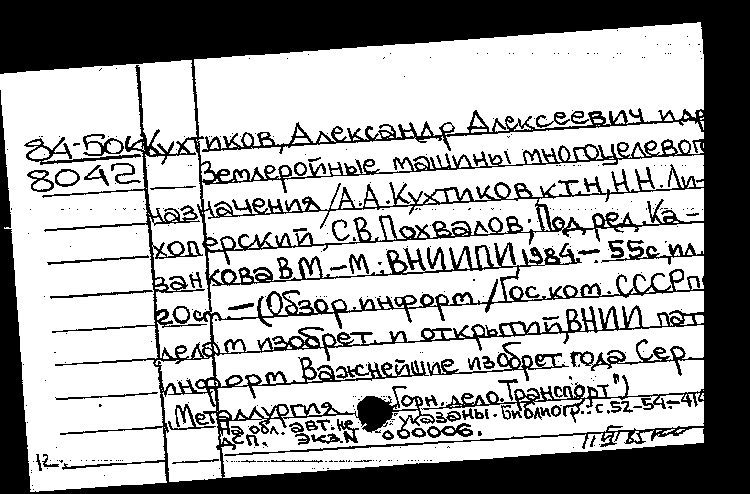 84-50к Кухтиков, Александр Алексеевич и др
8042 Землеройные машины многоцелевог
назначения /А.А.Кухтиков к.т.н, Н.Н. Ли-
хоперский, С.В. Похвалов; Под ред. Ка-
занкова В.М. –М.: ВНИИПИ 1984.– 55с, ил.
20 cm —(Обзор. информ. /Гос. ком. СССР по
делам изобрет. и открытий, ВНИИ пат
информ. Важнейшие изобрет. года Сер
„Металлургия Горн. дело. Транспорт")
На обл. авт. не указаны. Библиогр.: с. 52-54–
ДСП. Экз.N 000006.
12